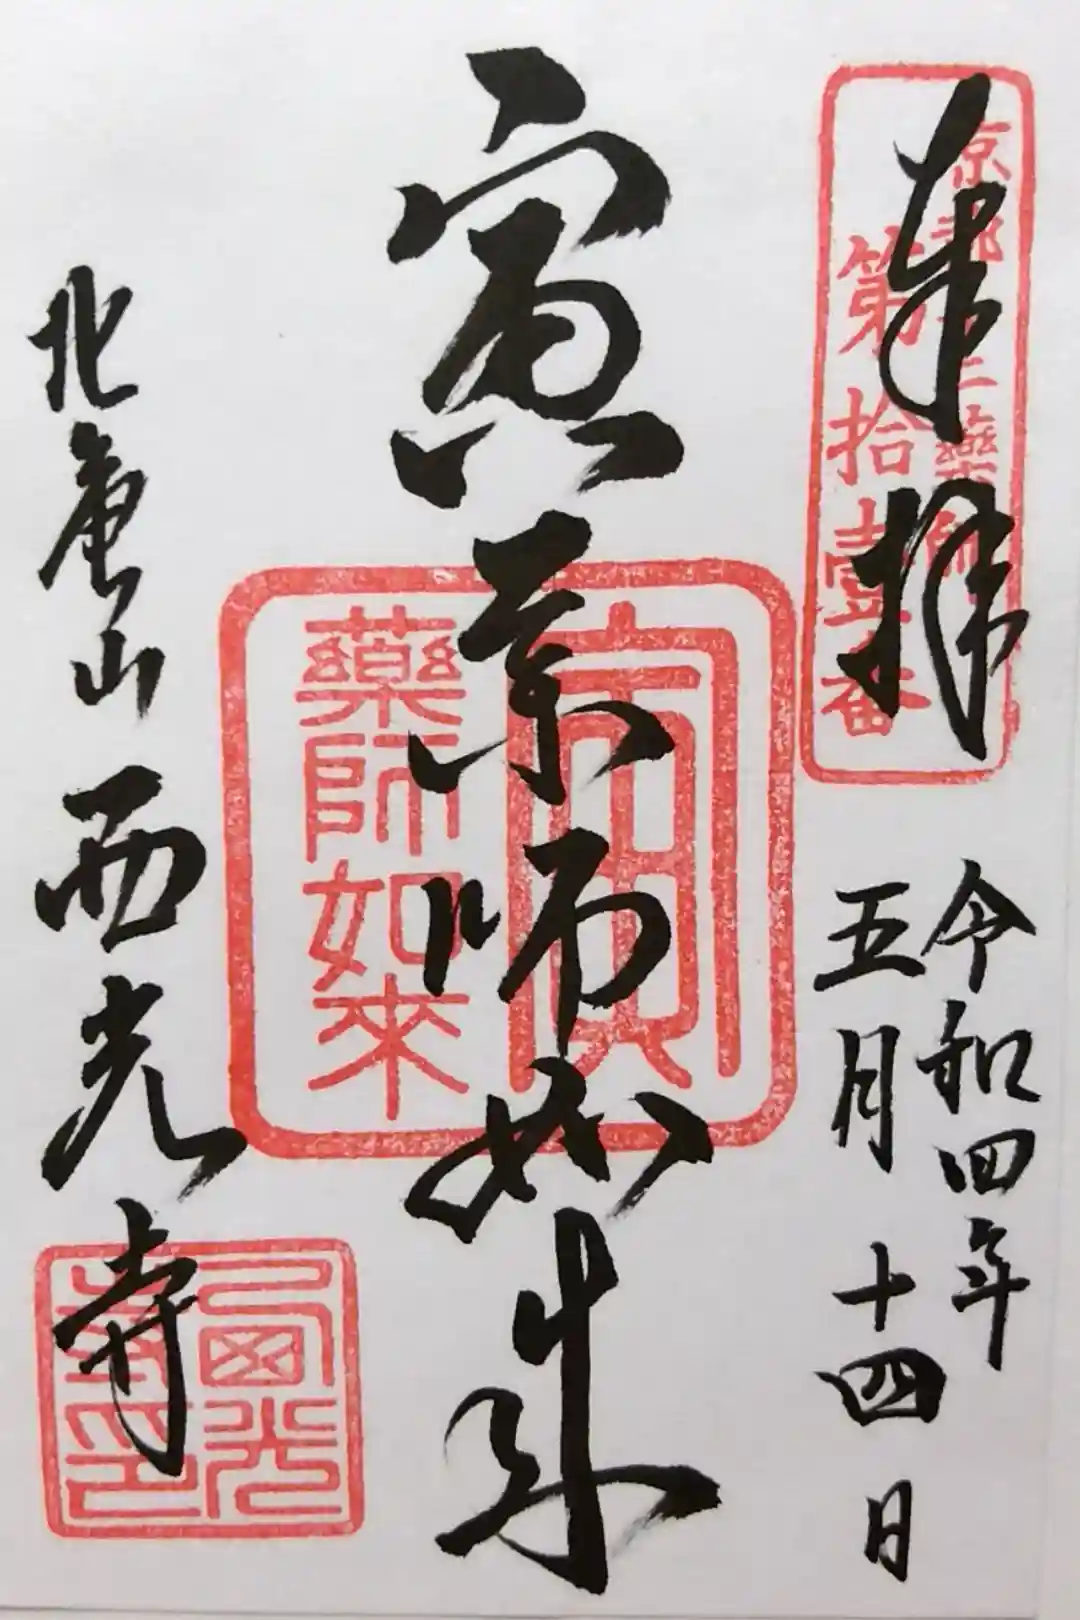 奉拝
京都十二藥師
第拾壹番
令和四年
五月十四日
寅薬師如来
寅
藥師如來
北 山 西光寺
西光
寺印